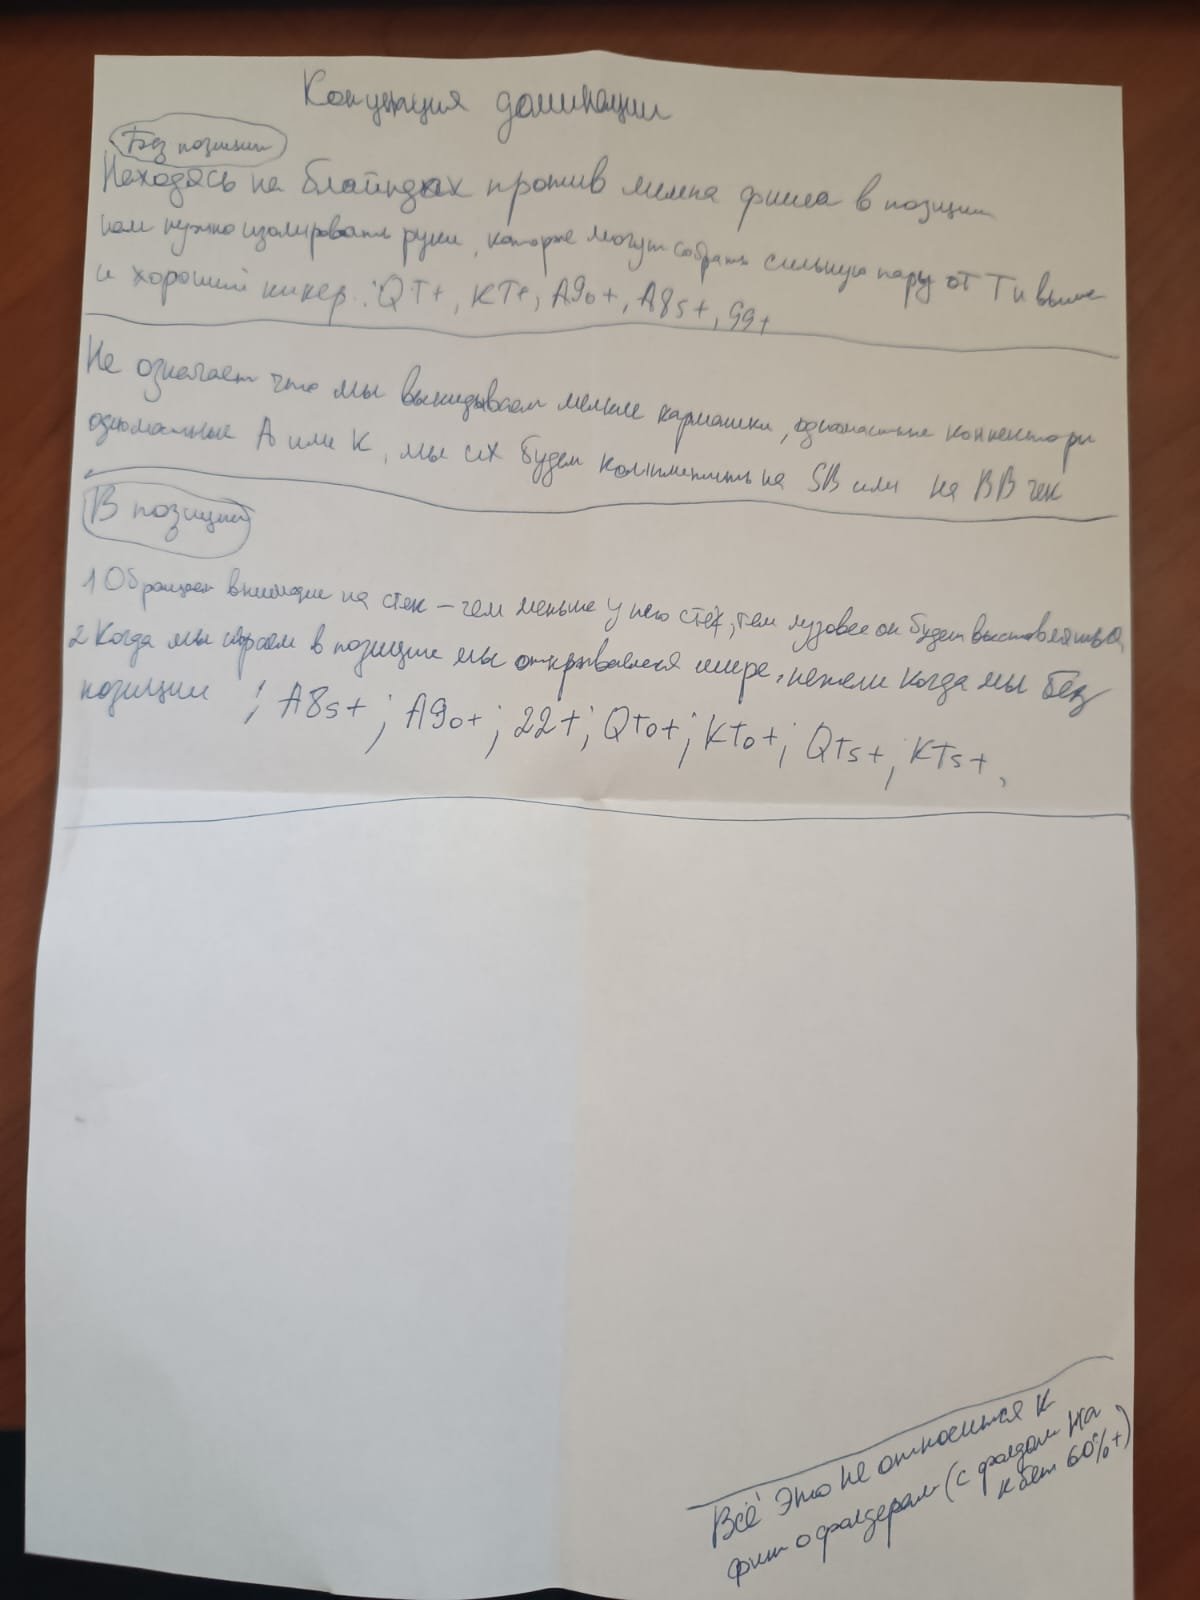 Концепция доминации
Без позиции
Находясь на блайндах против лимпа фиша в позиции
нам нужно изолировать руки, которые могут собрать сильную пару от Т и выше
и хороший кикер : QT+, KT+, A9o+, A8s+, 99+
Не означает что мы выкидываем мелкие кармашки, одномастные коннекторы
одномастные А или К, мы их будем комплитить на SB или на BB чек
В позиции
1 Обращаем внимание на стек – чем меньше у него стек, тем лузовее он будет выставляться
2 Когда мы играем в позиции мы открываемся шире, нежели когда мы без
позиции ; A8s+; A9o+; 22+; QTo+; KTo+; QTs+, KTs+,
Всё это не относится к
фит о фолдерам (с фолдом на
к бет 60%+)